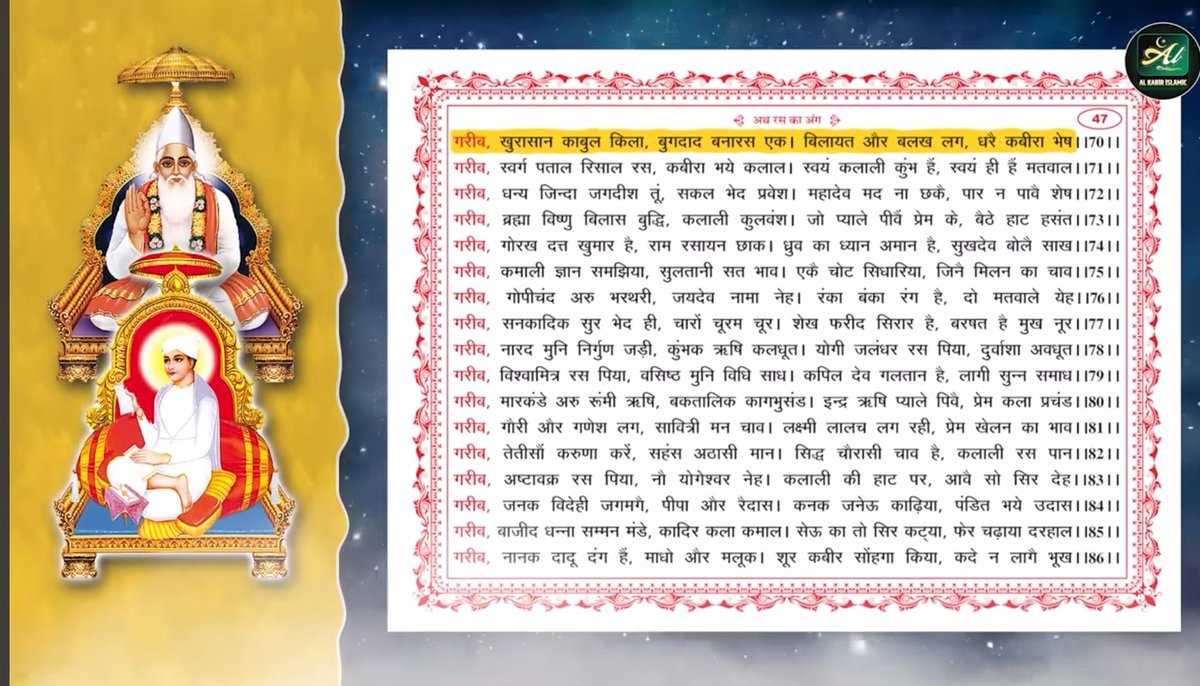 AL KABIR ISLAMIC
अथ रस का अंग
47
गरीब, खुरासान काबुल किला, बुगदाद बनारस एक। बिलायत और बलख लग, धरै कबीरा भेष।।70।।
गरीब, स्वर्ग पताल रिसाल रस, कबीरा भये कलाल। स्वयं कलाली कुंभ हैं, स्वयं ही हैं मतवाल।।71।।
गरीब, धन्य जिन्दा जगदीश तूं, सकल भेद प्रवेश। महादेव मद ना छकै, पार न पावै शेष।।72।।
गरीब, ब्रह्मा विष्णु बिलास बुद्धि, कलाली कुलवंश। जो प्याले पीवैं प्रेम के, बैठे हाट हसंत।।73।।
गरीब, गोरख दत्त खुमार है, राम रसायन छाक। ध्रुव का ध्यान अमान है, सुखदेव बोलै साख।।74।।
गरीब, कमाली ज्ञान समझिया, सुलतानी सत भाव। एकै चोट सिधारिया, जिनै मिलन का चाव।।75।।
गरीब, गोपीचंद अरु भरथरी, जयदेव नामा नेह। रंका बंका रंग है, दो मतवाले येह।।76।।
गरीब, सनकादिक सुर भेद ही, चारों चूरम चूर। शेख फरीद सिरार है, बरषत है मुख नूर।।77।।
गरीब, नारद मुनि निर्गुण जड़ी, कुंभक ऋषि कलधूत। योगी जलंधर रस पिया, दुर्वाशा अवधूत।।78।।
गरीब, विश्वामित्र रस पिया, वसिष्ठ मुनि विधि साध। कपिल देव गलतान है, लागी सुन्न समाध।।79।।
गरीब, मारकंडे अरु रुंमी ऋषि, बकतालिक कागभुसंड। इन्द्र ऋषि प्याले पिवै, प्रेम कला प्रचंड।।80।।
गरीब, गौरी और गणेश लग, सावित्री मन चाव। लक्ष्मी लालच लग रही, प्रेम खेलन का भाव।।81।।
गरीब, तेतीसौं करुणा करें, सहंस अठासी मान। सिद्ध चौरासी चाव है, कलाली रस पान।।82।।
गरीब, अष्टावक्र रस पिया, नौ योगेश्वर नेह। कलाली की हाट पर, आवै सो सिर देह।।83।।
गरीब, जनक विदेही जगमगै, पीपा और रैदास। कनक जनेऊ काढ़िया, पंडित भये उदास।।84।।
गरीब, बाजीद धन्ना सम्मन मंडे, कादिर कला कमाल। सेऊ का तो सिर कट्या, फेर चढ़ाया दरहाल।।85।।
गरीब, नानक दादू दंग हैं, माधो और मलूक। शूर कबीर सोंहगा किया, कदे न लागै भूख।।86।।